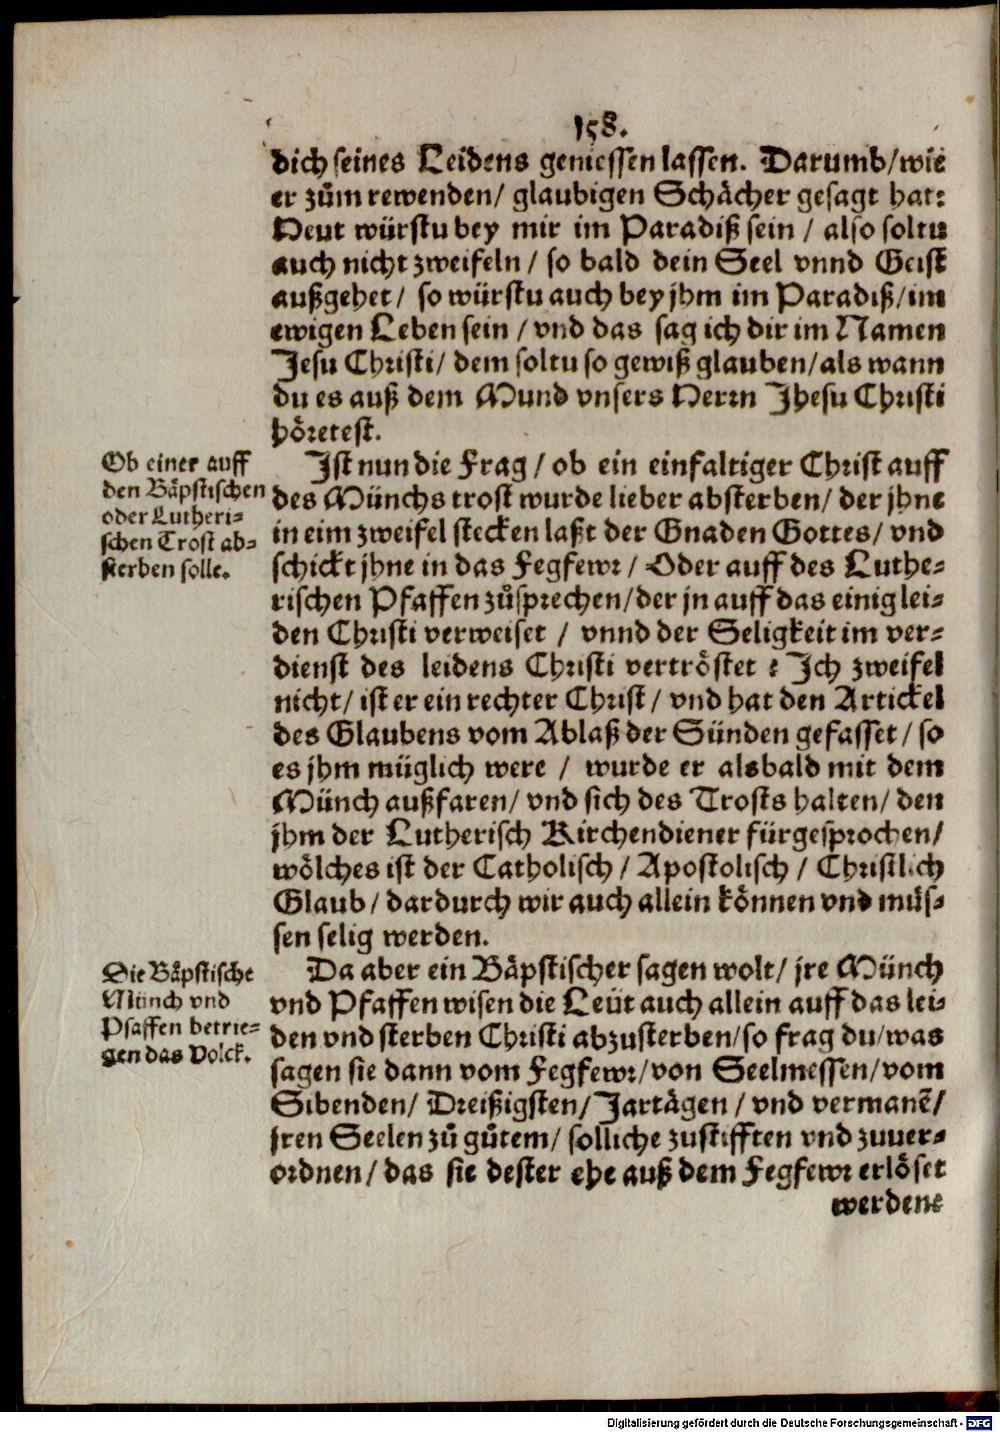 158.
dich seines Leidens geniessen lassen. Darumb/wie
er zům rewenden/ glaubigen Schächer gesagt hat:
Heut würstu bey mir im Paradiß sein / also soltu
auch nicht zweifeln / so bald dein Seel vnnd Geist
außgehet / so würstu auch bey jhm im Paradiß/im
ewigen Leben sein / vnd das sag ich dir im Namen
Jesu Christi/ dem soltu so gewiß glauben/als wann
du es auß dem Mund vnsers Herrn Jhesu Christi
höretest.
Ob einer auff
den Bäpstischen
oder Lutheri-
schen Trost ab-
sterben solle.
Ist nun die Frag / ob ein einfaltiger Christ auff
des Münchs trost wurde lieber absterben/ der jhne
in eim zweifel stecken laßt der Gnaden Gottes/ vnd
schickt jhne in das Fegfewr / Oder auff des Luthe-
rischen Pfaffen zůsprechen/der jn auff das einig lei-
den Christi verweiset / vnnd der Seligkeit im ver-
dienst des leidens Christi vertröstet ? Ich zweifel
nicht/ ist er ein rechter Christ/ vnd hat den Artickel
des Glaubens vom Ablaß der Sünden gefasset/ so
es jhm müglich were / wurde er alsbald mit dem
Münch außfaren/ vnd sich des Trosts halten/ den
jhm der Lutherisch Kirchendiener fürgesprochen/
wölches ist der Catholisch / Apostolisch / Christlich
Glaub / dardurch wir auch allein können vnd müs-
sen selig werden.
Die Bäpstische
Münch vnd
Pfaffen betrie-
gen das Volck.
Da aber ein Bäpstischer sagen wolt/ jre Münch
vnd Pfaffen wisen die Leüt auch allein auff das lei-
den vnd sterben Christi abzusterben/so frag du/was
sagen sie dann vom Fegfewr/von Seelmessen/vom
Sibenden/ Dreißigsten/ Jartägen / vnd vermanẽ/
jren Seelen zů gůtem/ solliche zustifften vnd zuuer-
ordnen/ das sie dester ehe auß dem Fegfewr erlöset
werden?
Digitalisierung gefördert durch die Deutsche Forschungsgemeinschaft - DFG